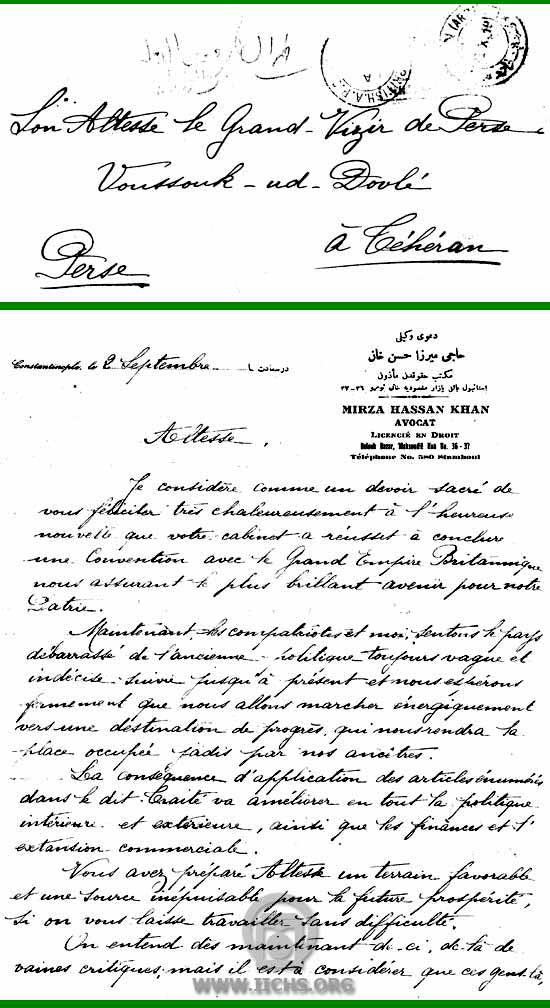 Son Altesse le Grand-Vizir de Perse
Voussouk-ud-Dovlé
à Téhéran
Perse
دعوى وكيلى
حاجى ميرزا حسن خان
مكتب حقوقدن مأذون
Constantinople, le 2 Septembre 1 در سعادت
MIRZA HASSAN KHAN
AVOCAT
LICENCIÉ EN DROIT
Han No. 36 - 37
Téléphone No. 580 Stamboul
Altesse,
Je considère comme un devoir sacré de
vous féliciter très chaleureusement à l'heureuse
nouvelle que votre cabinet a réussit à conclure
une Convention avec le Grand Empire Britannique
nous assurant le plus brillant avenir pour notre
Patrie.
Maintenant, les compatriotes et moi, sentons le pays
débarrassé de l'ancienne politique toujours vague et
indécise suivie jusqu'à présent et nous espérons
fermement que nous allons marcher énergiquement
vers une déstination de progrès, qui nous rendra la
place occupée jadis par nos ancêtres.
La conséquence d'application des articles énumérés
dans le dit Traité va améliorer en tout la politique
intérieure et extérieure, ainsi que les finances et l'
extansion commerciale.
Vous avez préparé Altesse un terrain favorable
et une source inépuisable pour la future prospérité,
si on vous laisse travailler sans difficulté.
On entend dès maintenant de-ci, de-là de
vaines critiques; mais il est à considérer que ces gens-là,
WWW.IICHS.ORG